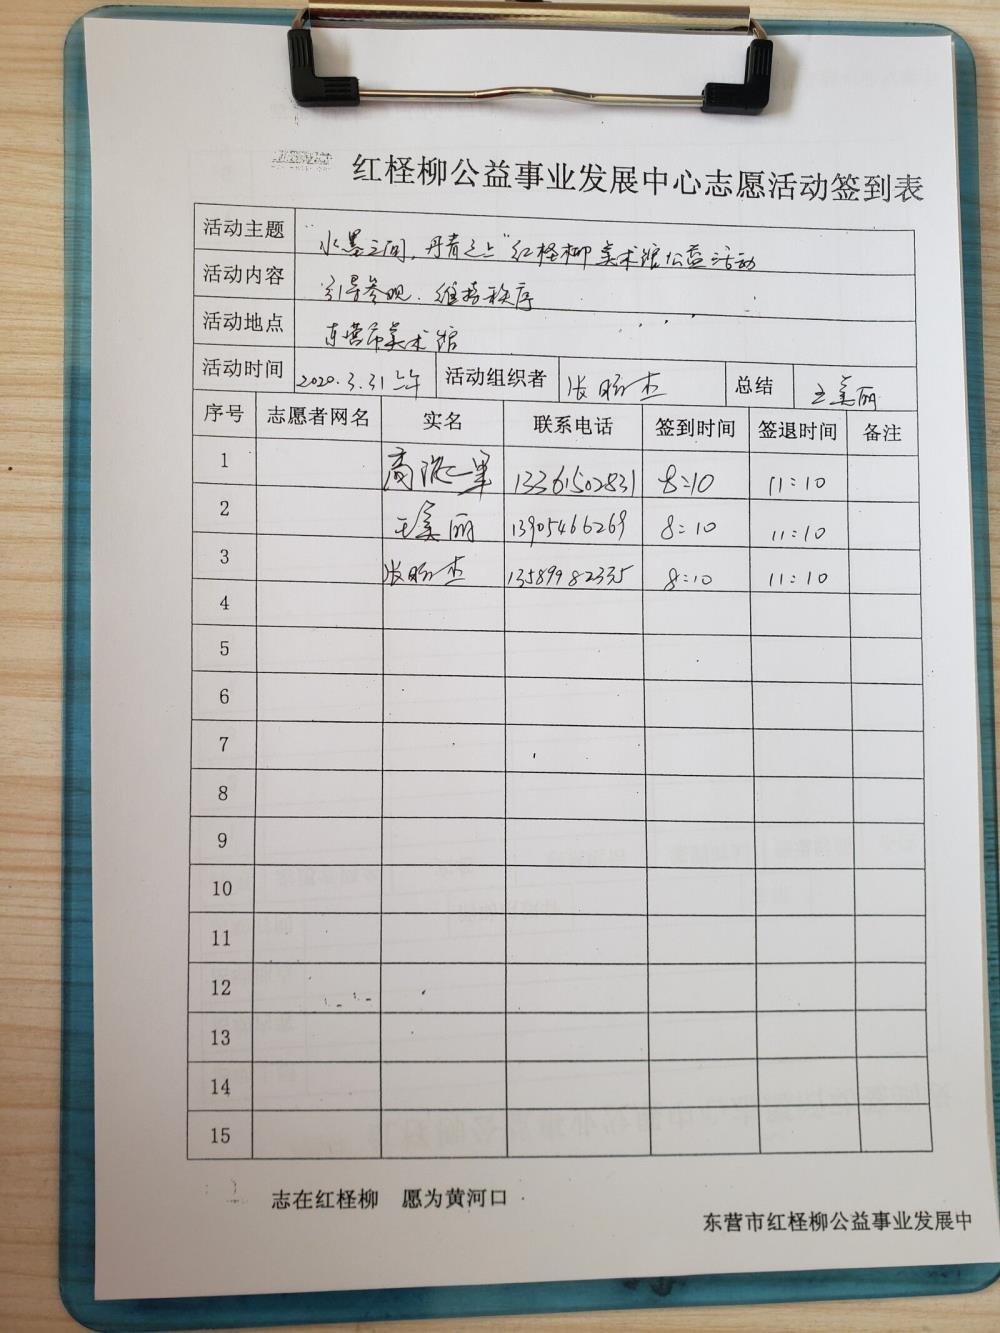 红柽柳公益事业发展中心志愿活动签到表
活动主题 "水墨之间,丹青之上"红柽柳美术馆公益活动
活动内容 引导参观、维持秩序
活动地点 东营市美术馆
活动时间 2020.3.31上午 活动组织者 张 杰 总结 王美丽
序号 志愿者网名 实名 联系电话 签到时间 签退时间 备注
1 高 13361502831 8:10 11:10
2 王美丽 13905466269 8:10 11:10
3 张 杰 13589982335 8:10 11:10
4
5
6
7
8
9
10
11
12
13
14
15
志在红柽柳 愿为黄河口
东营市红柽柳公益事业发展中